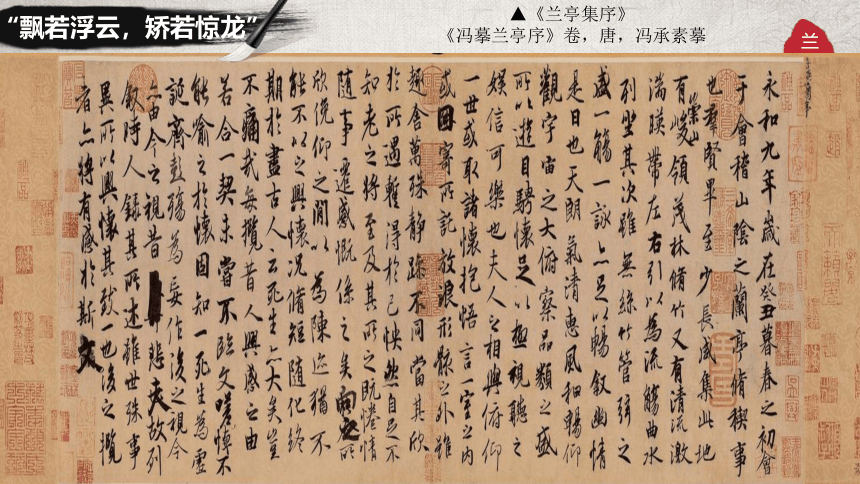 “飘若浮云，矫若惊龙”
▲《兰亭集序》
《冯摹兰亭序》卷，唐，冯承素摹
兰
永和九年歲在癸丑暮春之初會
于會稽山陰之蘭亭脩稧事
也羣賢畢至少長咸集此地
有崇山峻領茂林脩竹又有清流激
湍暎帶左右引以為流觴曲水
列坐其次雖無絲竹管弦之
盛一觴一詠亦足以暢叙幽情
是日也天朗氣清惠風和暢仰
觀宇宙之大俯察品類之盛
所以遊目騁懷足以極視聽之
娛信可樂也夫人之相與俯仰
一世或取諸懷抱悟言一室之內
或因寄所託放浪形骸之外雖
趣舍萬殊靜躁不同當其欣
於所遇暫得於己怏然自足不
知老之將至及其所之既惓情
隨事遷感慨係之矣向之所
欣俛仰之間以為陳迹猶不
能不以之興懷況脩短隨化終
期於盡古人云死生亦大矣豈
不痛哉每攬昔人興感之由
若合一契未嘗不臨文嗟悼不
能喻之於懷固知一死生為虛
誕齊彭殤為妄作後之視今
亦由今之視昔悲夫故列
叙時人錄其所述雖世殊事
異所以興懷其致一也後之攬
者亦將有感於斯文